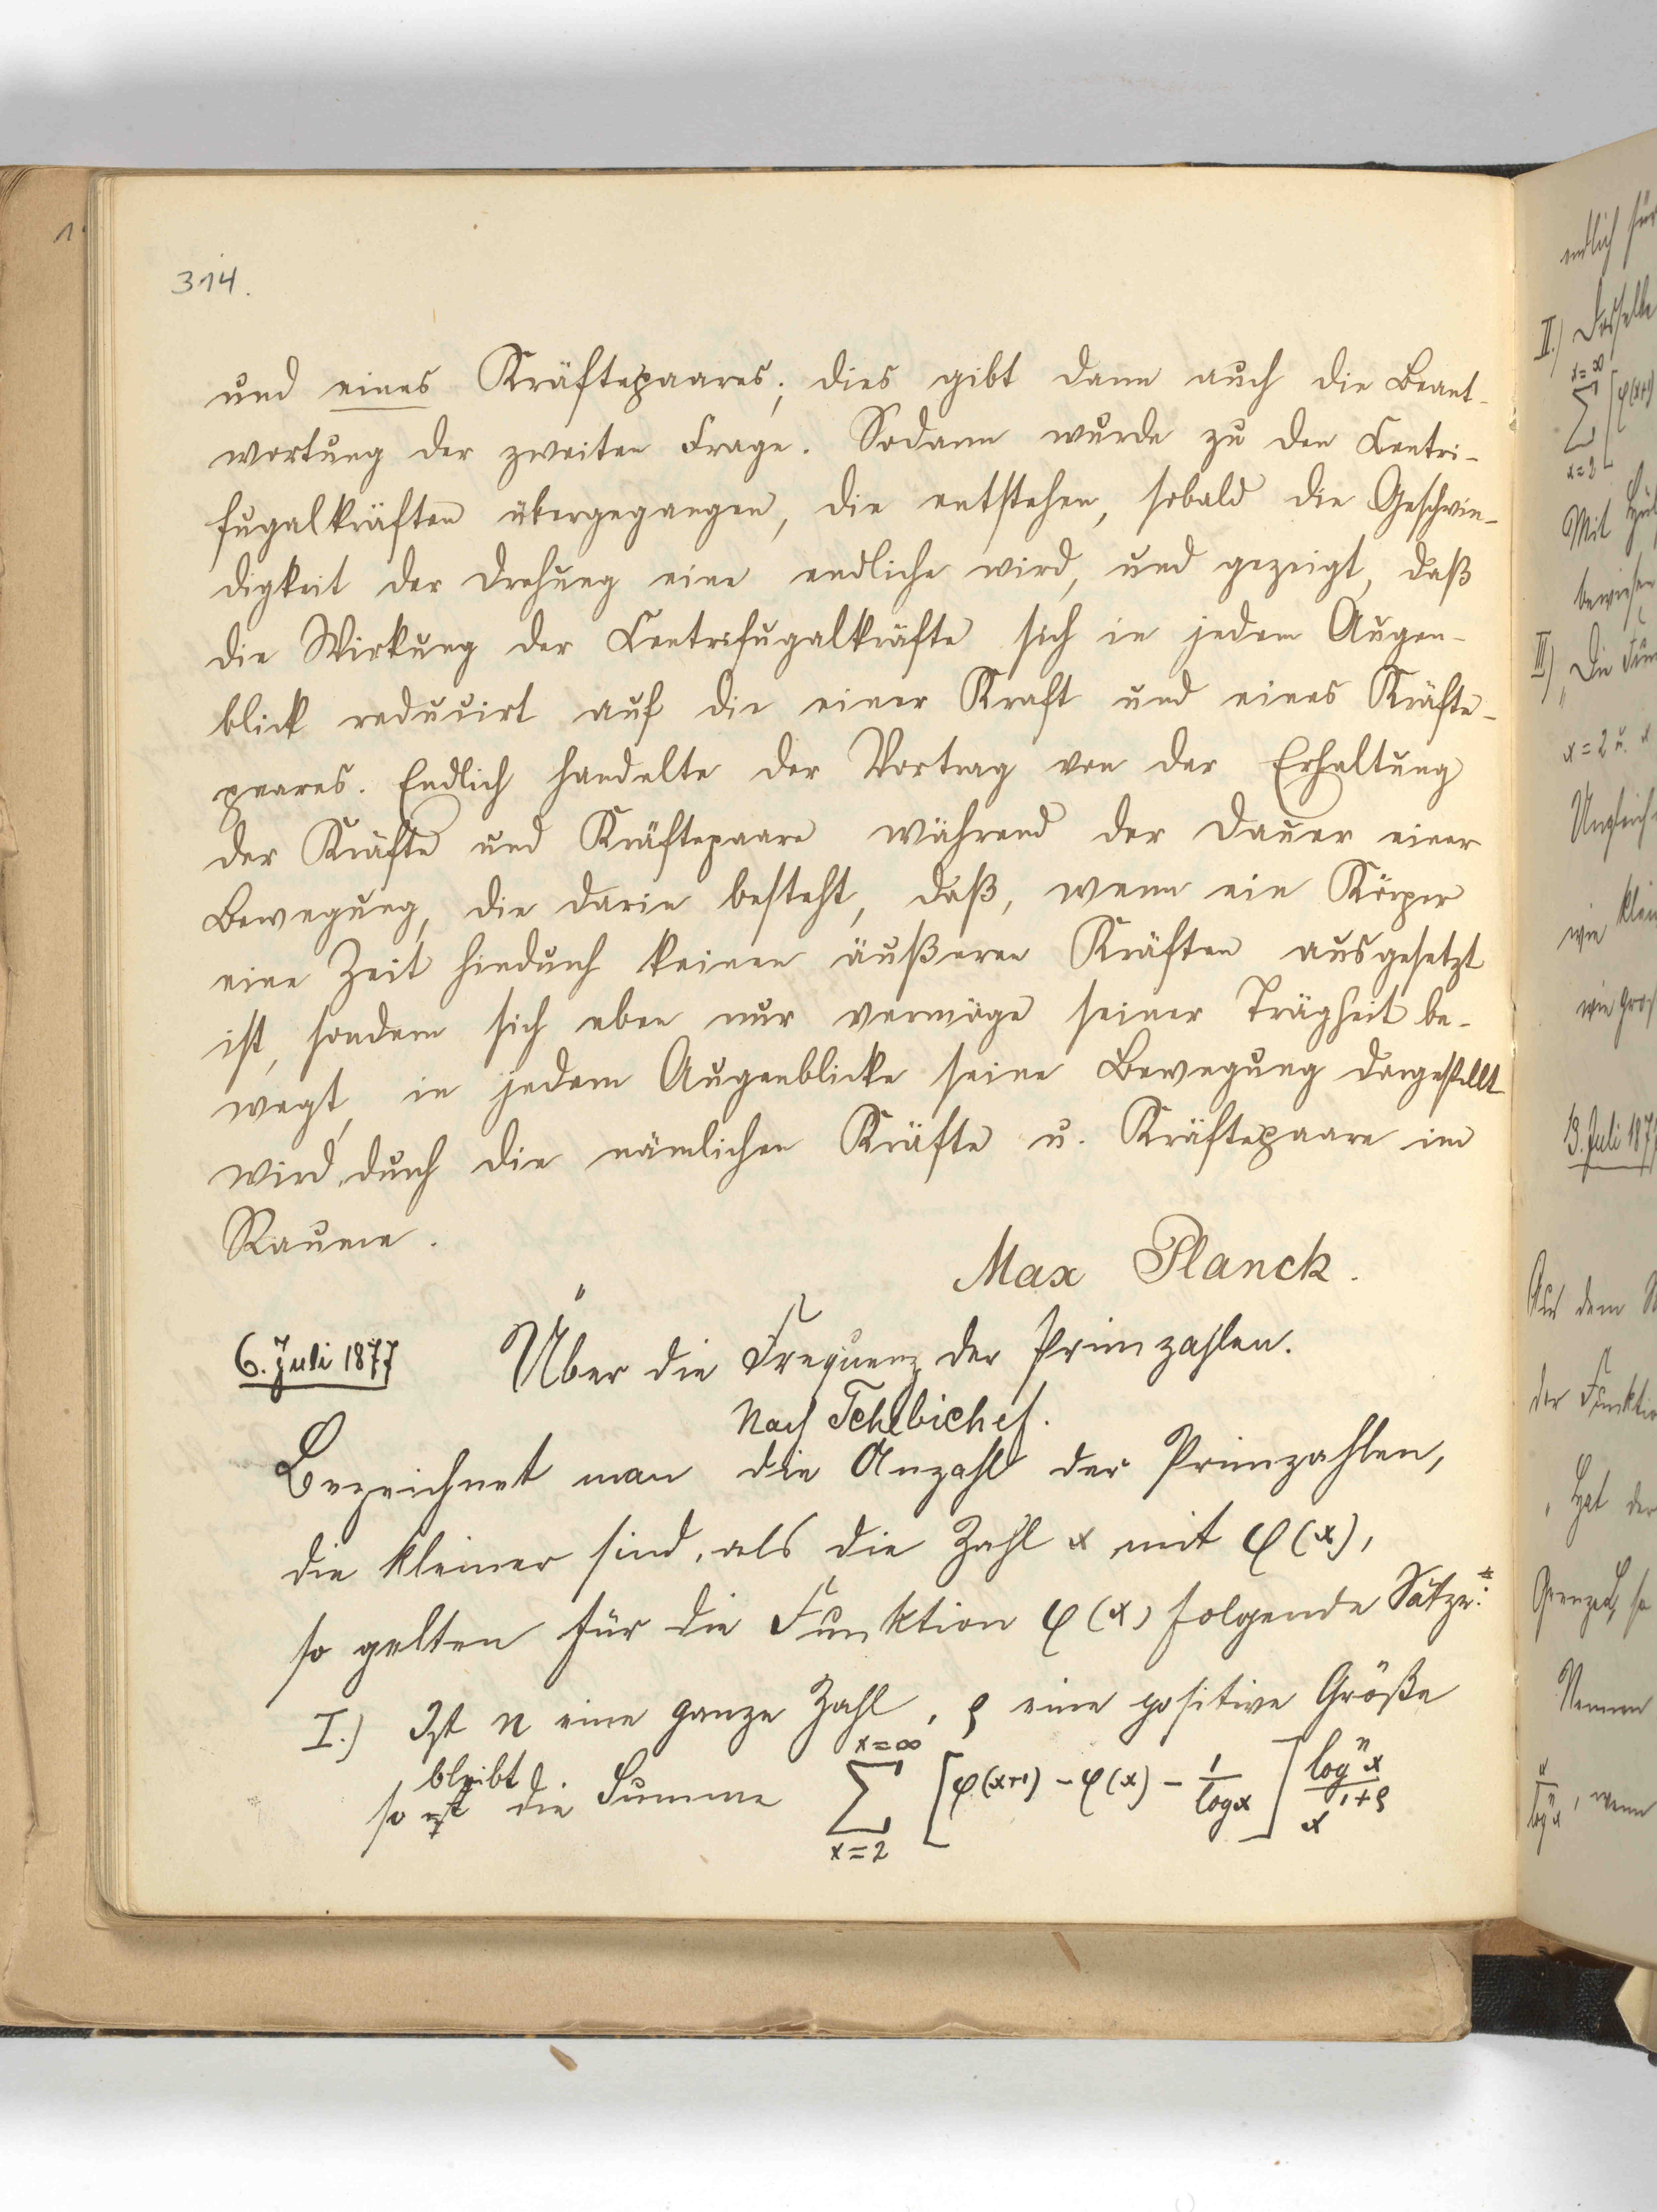 314.
und eines Kräftepaares; dies gibt dann auch die Beant-
wortung der zweiten Frage. Sodann wurde zu den Centri-
fugalkräften übergegangen, die entstehen, sobald die Geschwin-
digkeit der Drehung eine endliche wird, und gezeigt, daß
die Wirkung der Centrifugalkräfte sich in jedem Augen-
blick reducirt auf die einer Kraft und eines Kräfte-
paares. Endlich handelte der Vortrag von der Erhaltung
der Kräfte und Kräftepaare während der Dauer einer
Bewegung, die darin besteht, daß, wenn ein Körper
eine Zeit hindurch keinen äußeren Kräften ausgesetzt
ist, sondern sich eben nur vermöge seiner Trägheit be-
wegt, in jedem Augenblicke seine Bewegung dargestellt
wird durch die nämlichen Kräfte u. Kräftepaare im
Raume.
Max Planck.
6. Juli 1877 Über die Frequenz der Primzahlen.
Nach Tchebichef.
Bezeichnet man die Anzahl der Primzahlen,
die kleiner sind, als die Zahl x mit φ(x),
so gelten für die Funktion φ(x) folgende Sätze:*
I.) Ist n eine ganze Zahl, ρ eine positive Größe
so bleibt die Summe \sum_{x=2}^{x=∞} [φ(x+1) - φ(x) - \frac{1}{log x}] \frac{log^n x}{x^{1+ρ}}
endlich für
II.) Dasselbe
x=∞
∑ [φ(x+1)
x=2
Mit
bewiesen
III.) Die
x=2 u. x
wie klein
wie groß
13. Juli 1877
Aus dem
der Funktio
Grenze
Nennen
\frac{x}{log^n x}, wenn